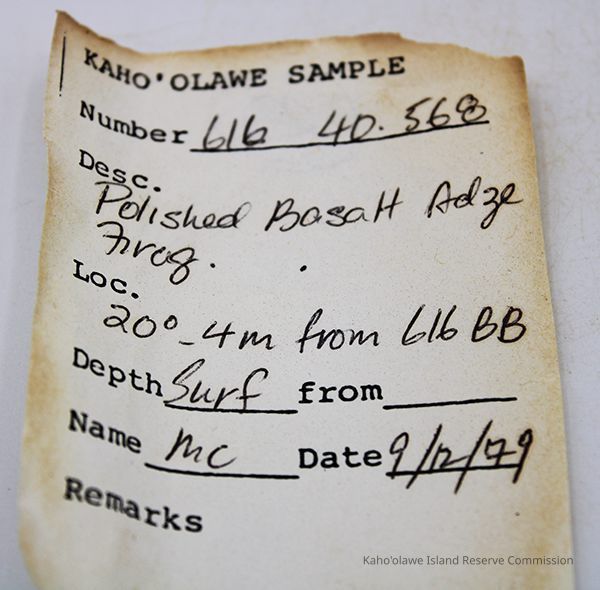 KAHO'OLAWE SAMPLE
Number 616 40.568
Desc.
Polished Basalt Adze
Frag.
Loc.
20° - 4m from 616 BB
Depth Surf from
Name MC Date 9/12/79
Remarks
Kaho'olawe Island Reserve Commission